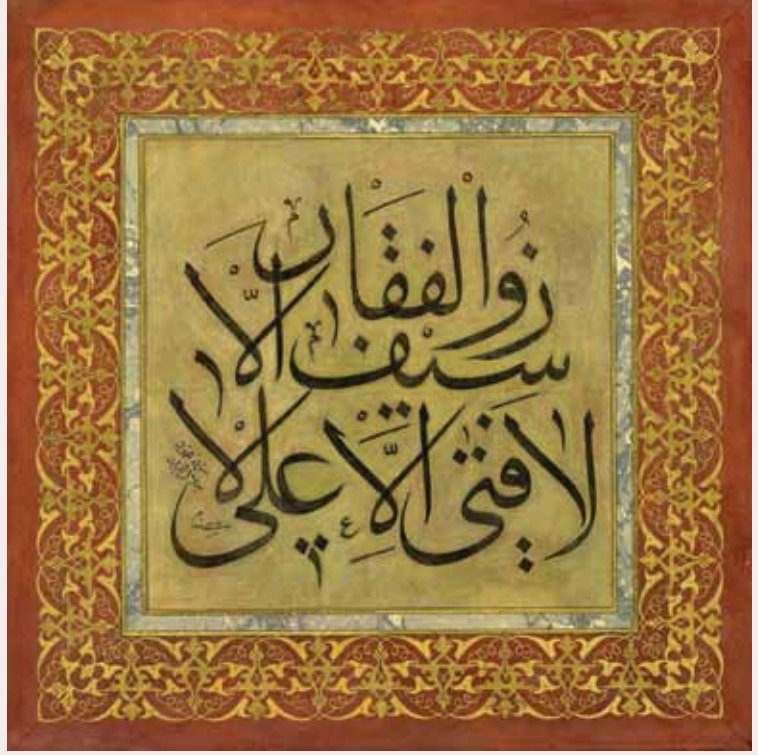 لا فتى الّا علي لا
سيف الّا
ذوالفقار